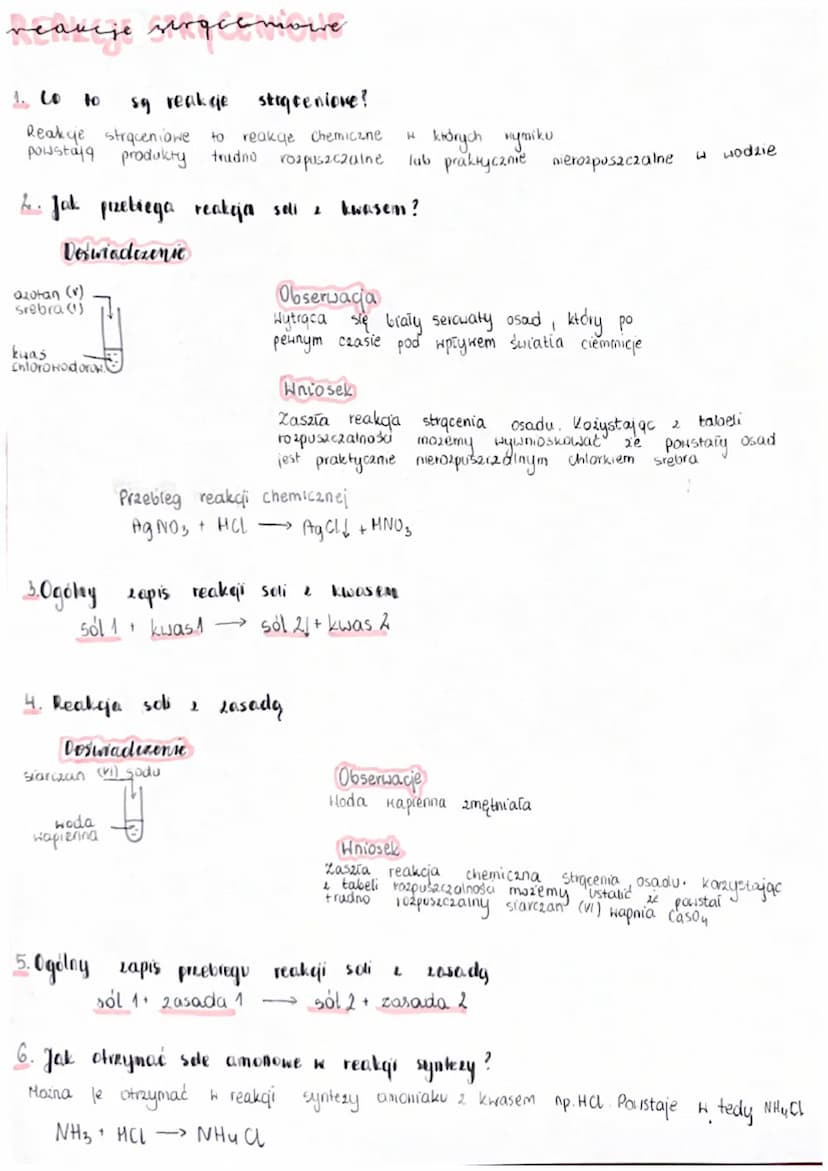 reakcje strąceniowe
1. Co to są reakcje strąceniowe?
Reakcje strąceniowe to reakcje chemiczne w których wyniku
powstają produkty trudno rozpuszczalne lub praktycznie nierozpuszczalne w wodzie
2. Jak przebiega reakcja soli z kwasem?
Doświadczenie
azotan (V)
srebra (I)
kwas
chlorowodorow.
Obserwacja
Wytrąca się biały serowaty osad, który po
pewnym czasie pod wpływem światła ciemnieje
Wniosek
Zaszła reakcja strącenia osadu. Kożystając z tabeli
rozpuszczalności możemy wywnioskować że powstały osad
jest praktycznie nierozpuszczalnym chlorkiem srebra
Przebieg reakcji chemicznej
AgNO₃ + HCl → AgCl↓ + HNO₃
3. Ogólny zapis reakcji soli z kwasem
sól 1 + kwas 1 → sól 2↓ + kwas 2
4. Reakcja soli z zasadą
Doświadczenie
siarczan (VI) sodu
woda
wapienna
Obserwacje
Woda wapienna zmętniała
Wniosek
Zaszła reakcja chemiczna strącenia osadu. korzystając
z tabeli rozpuszczalności możemy ustalić że powstał
trudno rozpuszczalny siarczan (VI) wapnia CaSO₄
5. Ogólny zapis przebiegu reakcji soli z zasadą
sól 1 + zasada 1 → sól 2 + zasada 2
6. Jak otrzymać sole amonowe w reakcji syntezy?
Można je otrzymać w reakcji syntezy amoniaku z kwasem np. HCl. Powstaje w tedy NH₄Cl
NH₃ + HCl → NH₄Cl